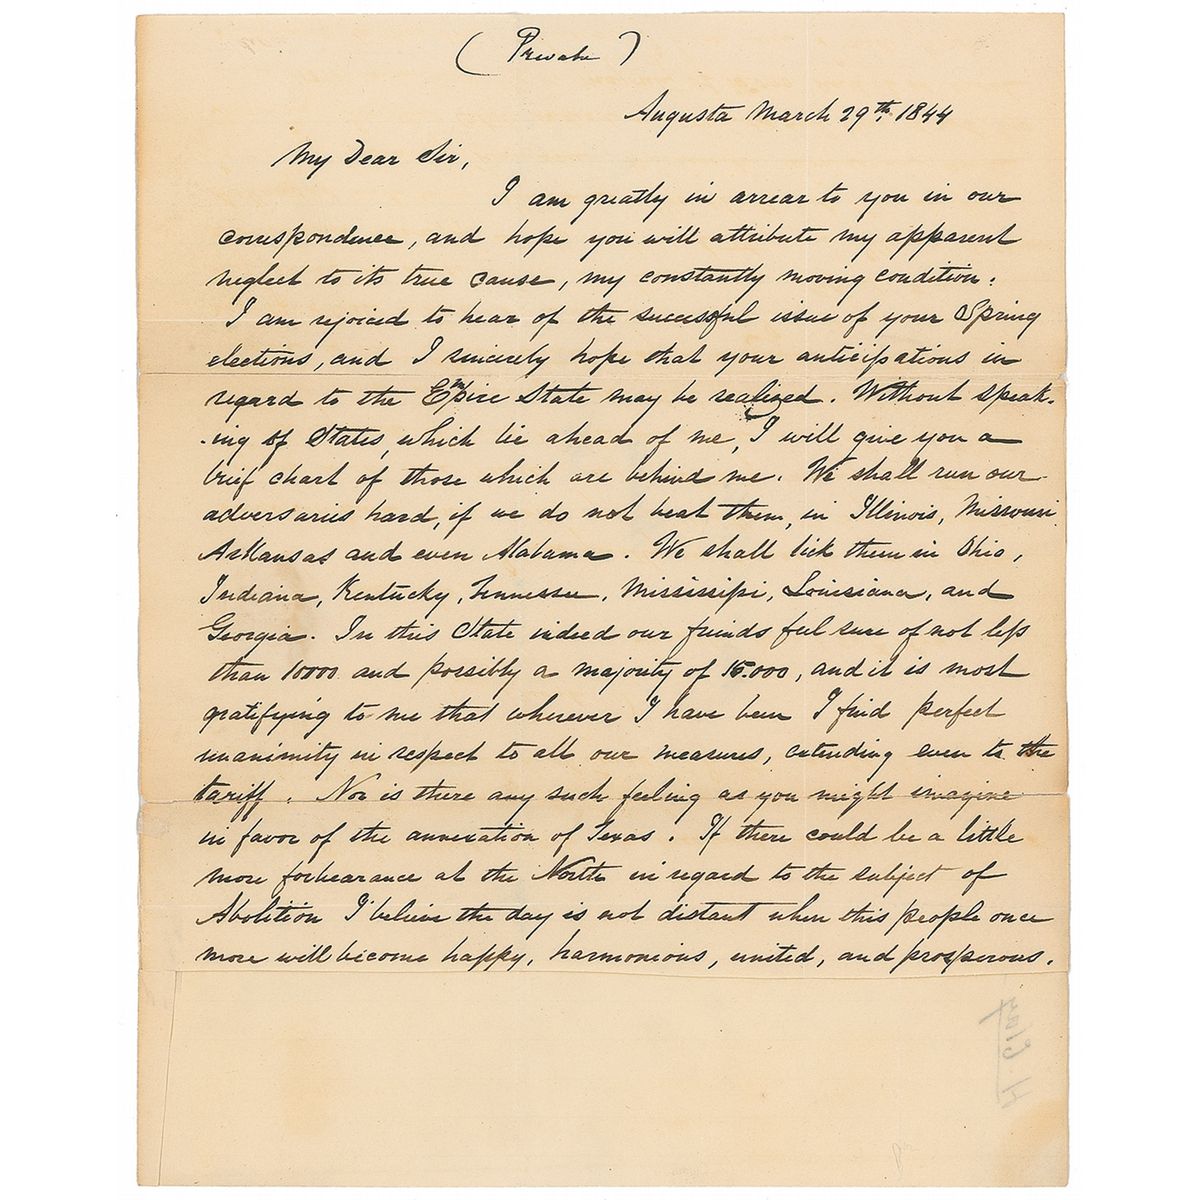 (Private)
Augusta March 29th, 1844
My Dear Sir,
I am greatly in arrear to you in our
correspondence, and hope you will attribute my apparent
neglect to its true cause, my constantly moving condition.
I am rejoiced to hear of the successful issue of your Spring
elections, and I sincerely hope that your anticipations in
regard to the Empire State may be realized. Without speak-
-ing of States, which lie ahead of me, I will give you a
brief chart of those which are behind me. We shall run our
adversaries hard, if we do not beat them, in Illinois, Missouri
Arkansas and even Alabama. We shall lick them in Ohio,
Indiana, Kentucky, Tennessee, Mississippi, Louisiana, and
Georgia. In this State indeed our friends feel sure of not less
than 10000 and possibly a majority of 15.000, and it is most
gratifying to me that wherever I have been I find perfect
unanimity in respect to all our measures, extending even to the
tariff. Nor is there any such feeling as you might imagine
in favor of the annexation of Texas. If there could be a little
more forbearance at the North in regard to the subject of
Abolition I believe the day is not distant when this people once
more will become happy, harmonious, united, and prosperous.
H. Clay